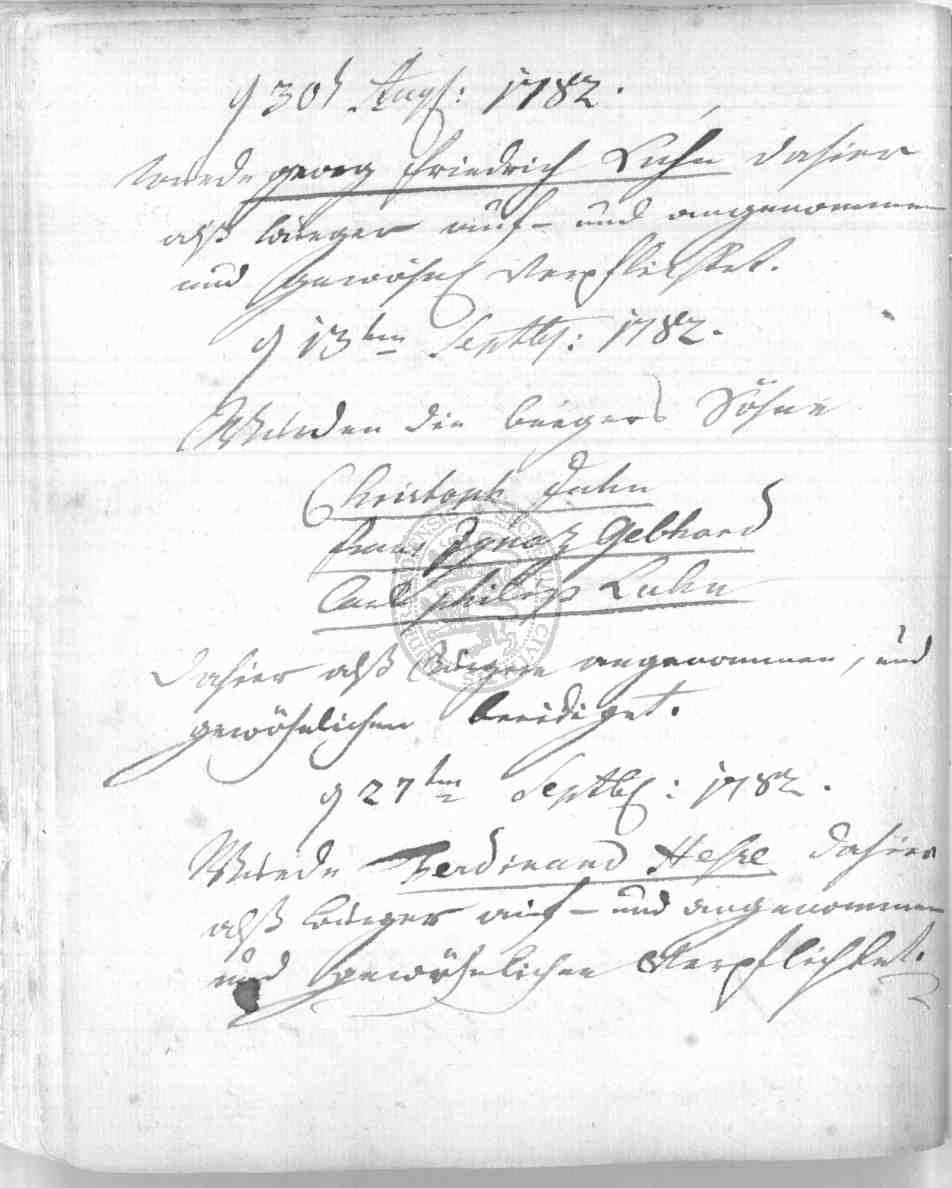 d 30t Aug: 1782.
Wurde georg friedrich Luhn dahier
alß burger auf- und angenommen
und gewöhnl verpflichtet.
d 13ten Septbr: 1782.
Wurden die burgers Söhne
Christoph Juhn
franz Ignaz Gebhard
Carl philip Luhn
dahier alß Burgere angenommen, und
gewöhnlichen beeidiget.
d 27ten Septbr: 1782.
Wurde Ferdinand Heße dahier
alß burger auf- und angenommen
und gewöhnlichen Verpflichtet.